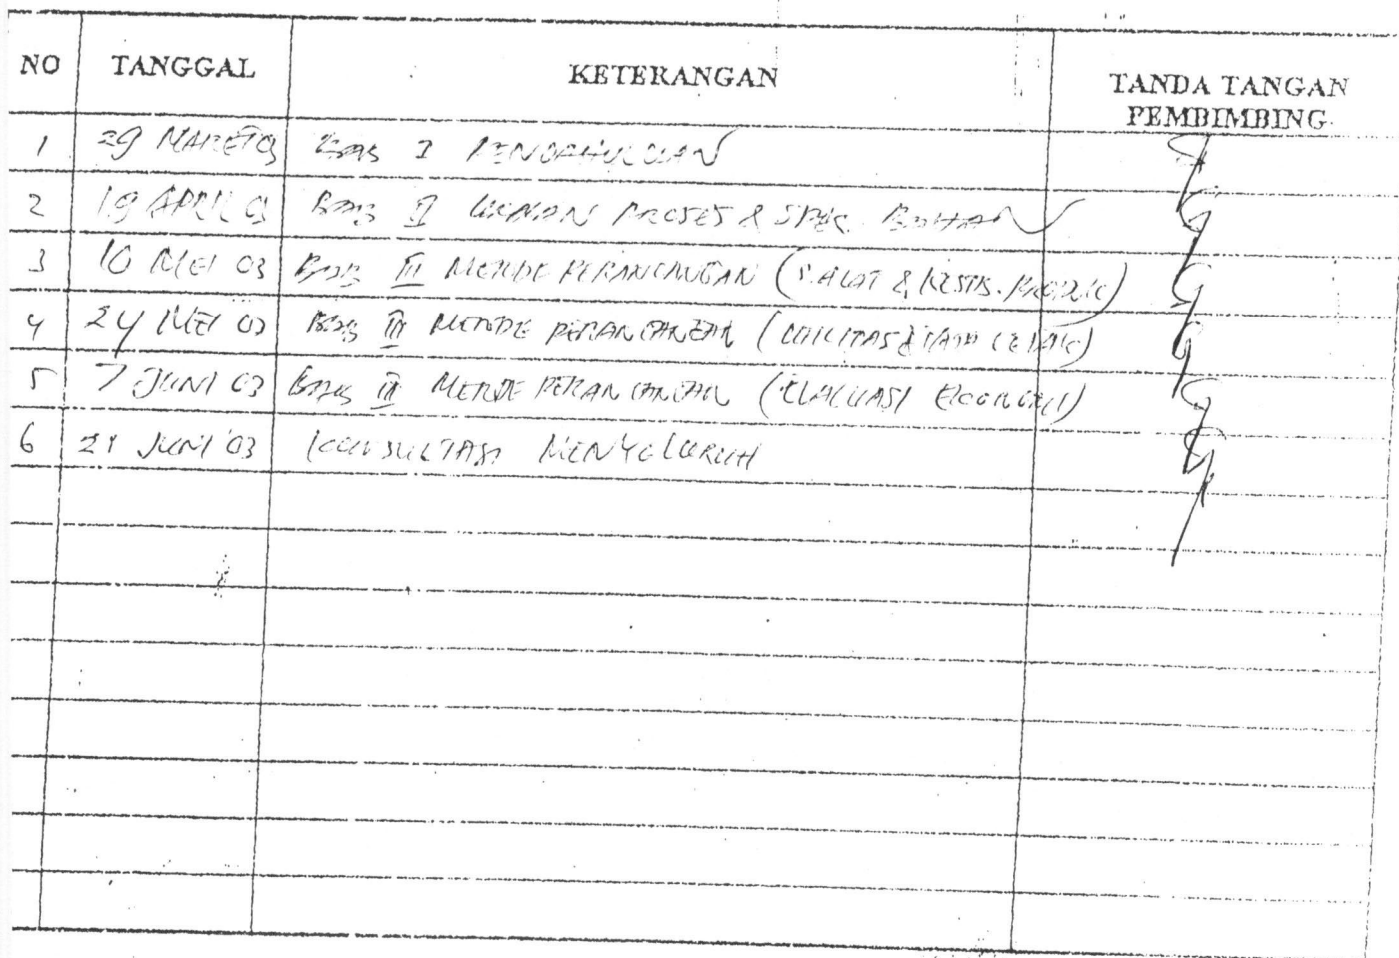 NO TANGGAL KETERANGAN TANDA TANGAN PEMBIMBING
1 29 MARET 03 BAB I PENDAHULUAN
2 19 APRIL 03 BAB II URAIAN PROSES & SPEK. BAHAN
3 10 MEI 03 BAB III METODE PERANCANGAN (S. ALAT & PRODUK)
4 24 MEI 03 BAB III METODE PERANCANGAN (UTILITAS & TATA LETAK)
5 7 JUNI 03 BAB III METODE PERANCANGAN (EVALUASI EKONOMI)
6 21 JUNI '03 KONSULTASI MENYELURUH